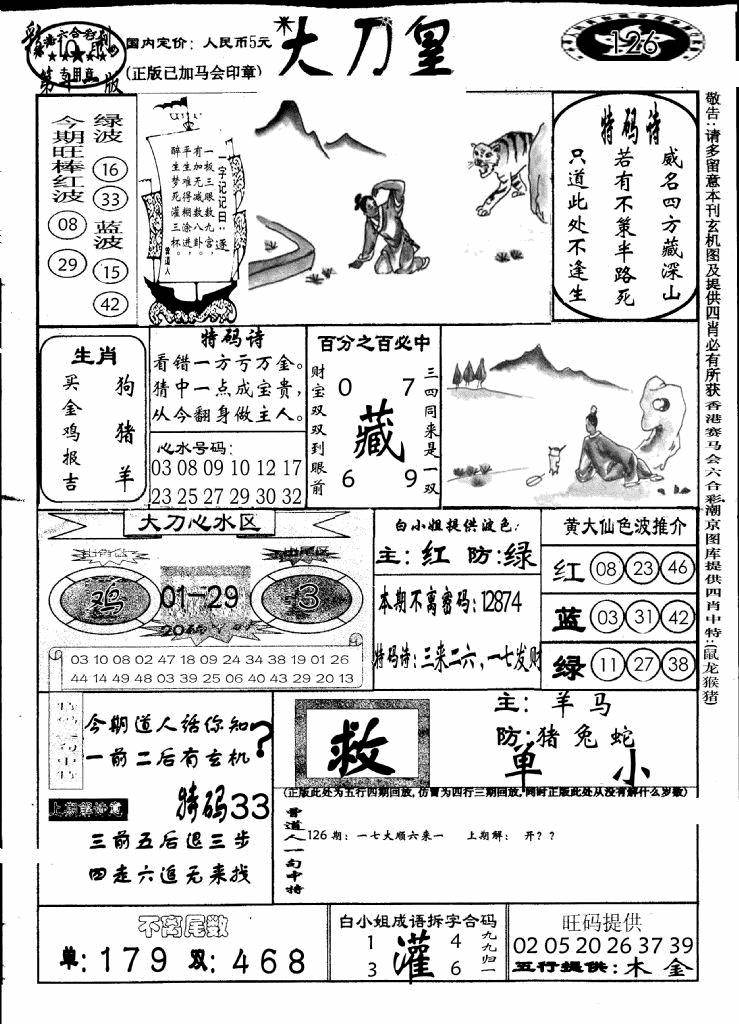 国内定价：人民币5元
(正版已加马会印章)
专用章
大刀皇
126
敬告：请多留意本刊玄机图及提供四肖必有所获 香港赛马会六合彩潮京图库提供四肖中特：(鼠龙猴猪)
今期旺棒红波
08
29
绿波
16
33
蓝波
15
42
一字记记曰：逐
一板三眼数九宫，
有加无减数八卦。
平生难得糊涂进，
醉生梦死灌三杯。
曾道人
特码诗
威名四方藏深山
若有不策半路死
只道此处不逢生
生肖
买金鸡报吉
狗猪羊
特码诗
看错一方亏万金。
猜中一点成宝贵，
从今翻身做主人。
心水号码：
03 08 09 10 12 17
23 25 27 29 30 32
百分之百必中
财宝双双到眼前
0 7
藏
6 9
三四同来是一双
大刀心水区
鸡
01—29
3
03 10 08 02 47 18 09 24 34 38 19 01 26
44 14 49 48 03 21 40 28 11 43 29 20 13
白小姐提供波色：
主：红 防：绿
本期不离密码：12874
特码诗：三来二六，一七发财
黄大仙色波推介
红 08 23 46
蓝 03 31 42
绿 11 27 38
今期道人话你知
一前二后有玄机
?
特码33
三前五后退三步
四走六追无来找
救
主：羊马
防：猪兔蛇
单 小
(正版此处为五行四期回放，仿冒为四行三期回放，同时正版此处从没有解什么岁数)
曾道人一句中特
126 期：一七大顺六来一 上期解： 开？？
不离尾数
单：179 双：468
白小姐成语拆字合码
1 4
灌
3 6
九九归一
旺码提供
02 05 20 26 37 39
五行提供：木 金